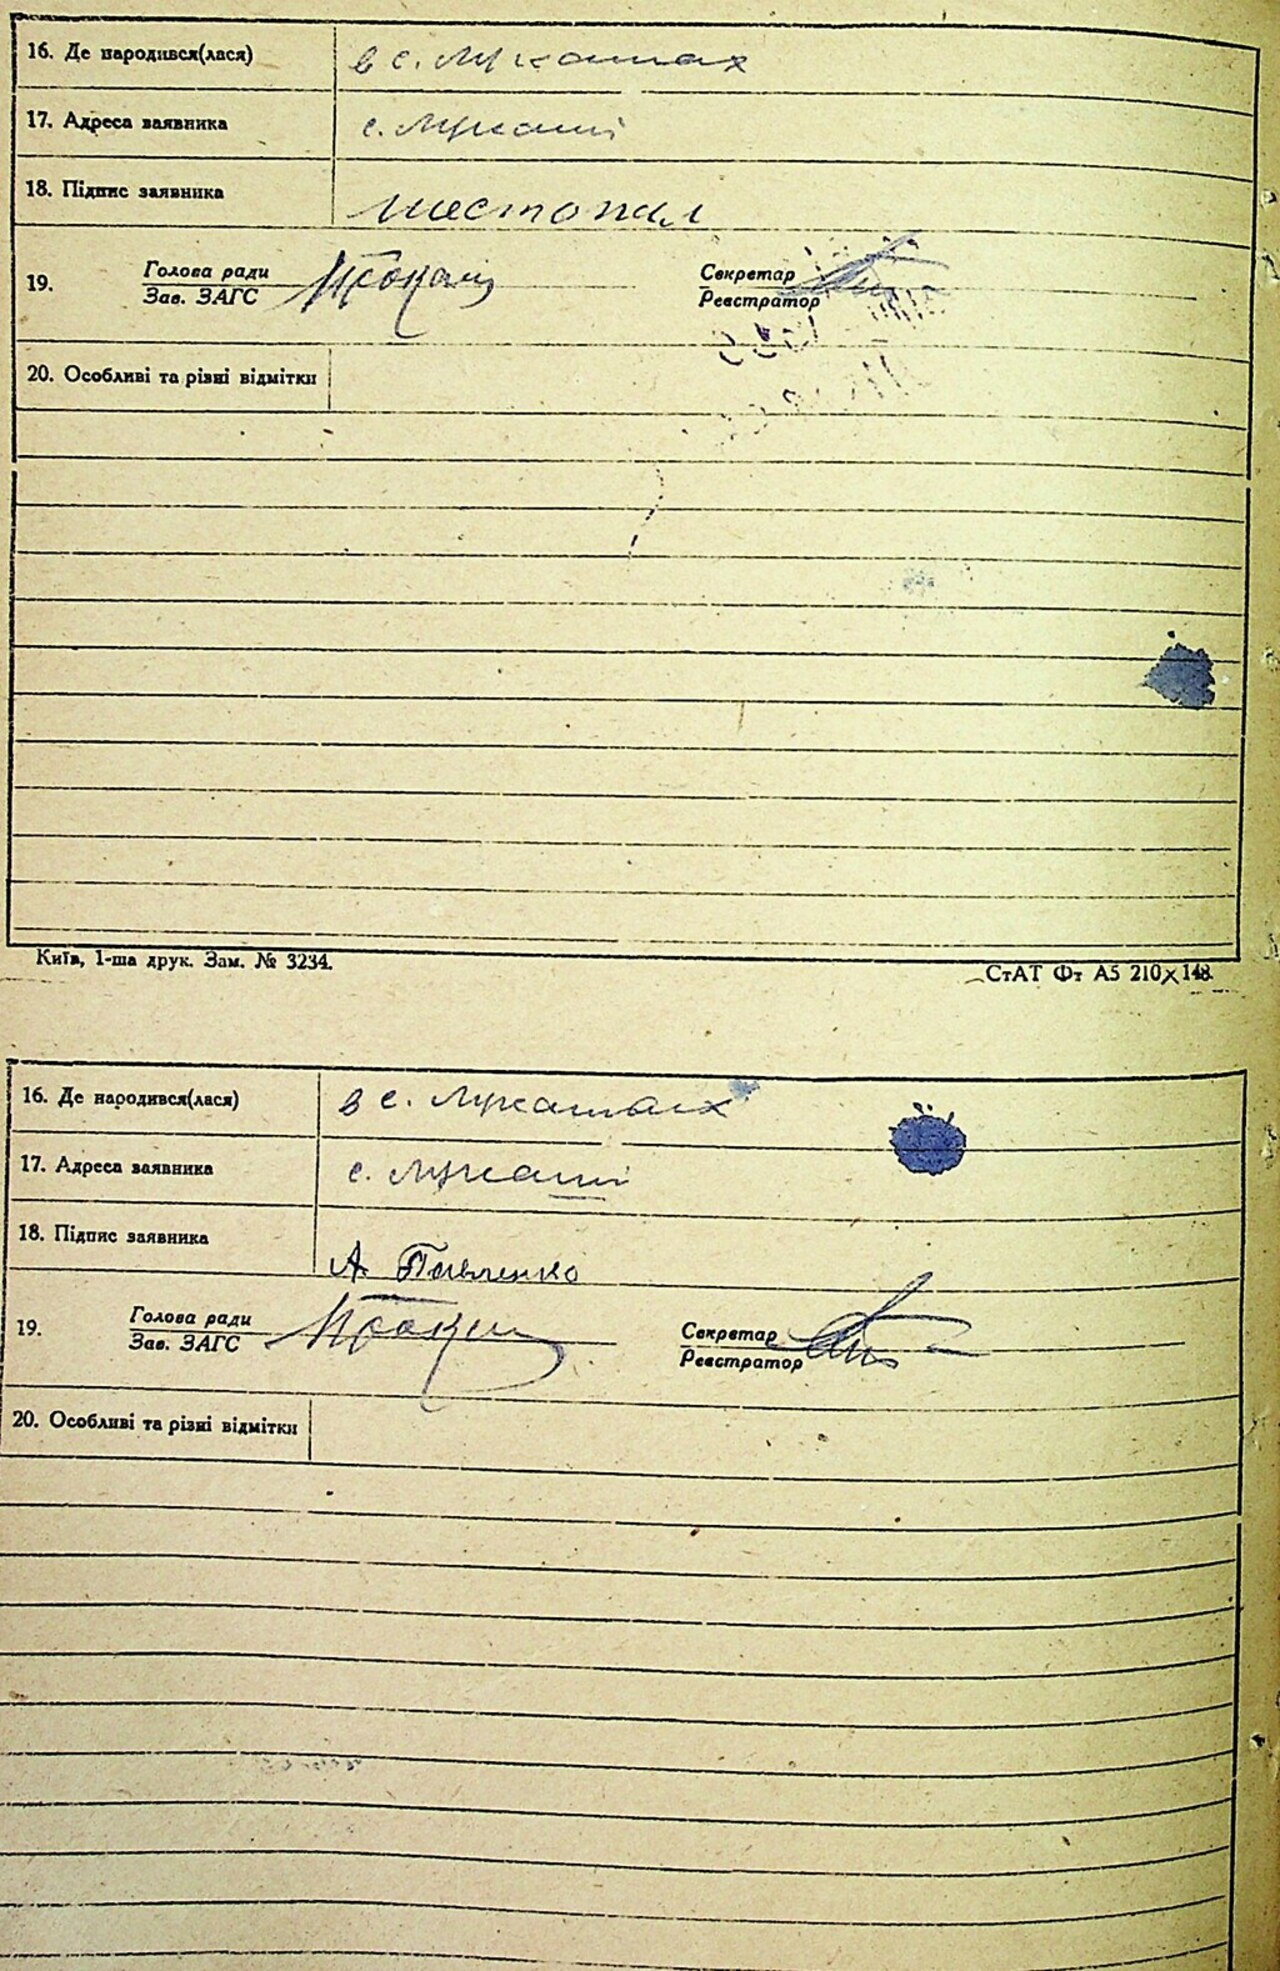 16. Де народився(лася) в с. Лукашах
17. Адреса заявника с. Лукаші
18. Підпис заявника Шестопал
19. Голова ради Секретар
Зав. ЗАГС Реєстратор
20. Особливі та різні відмітки
Київ, 1-ша друк. Зам. № 3234. СтАТ Фт А5 210×148.
16. Де народився(лася) в с. Лукашах
17. Адреса заявника с. Лукаші
18. Підпис заявника А Павленко
19. Голова ради Секретар
Зав. ЗАГС Реєстратор
20. Особливі та різні відмітки